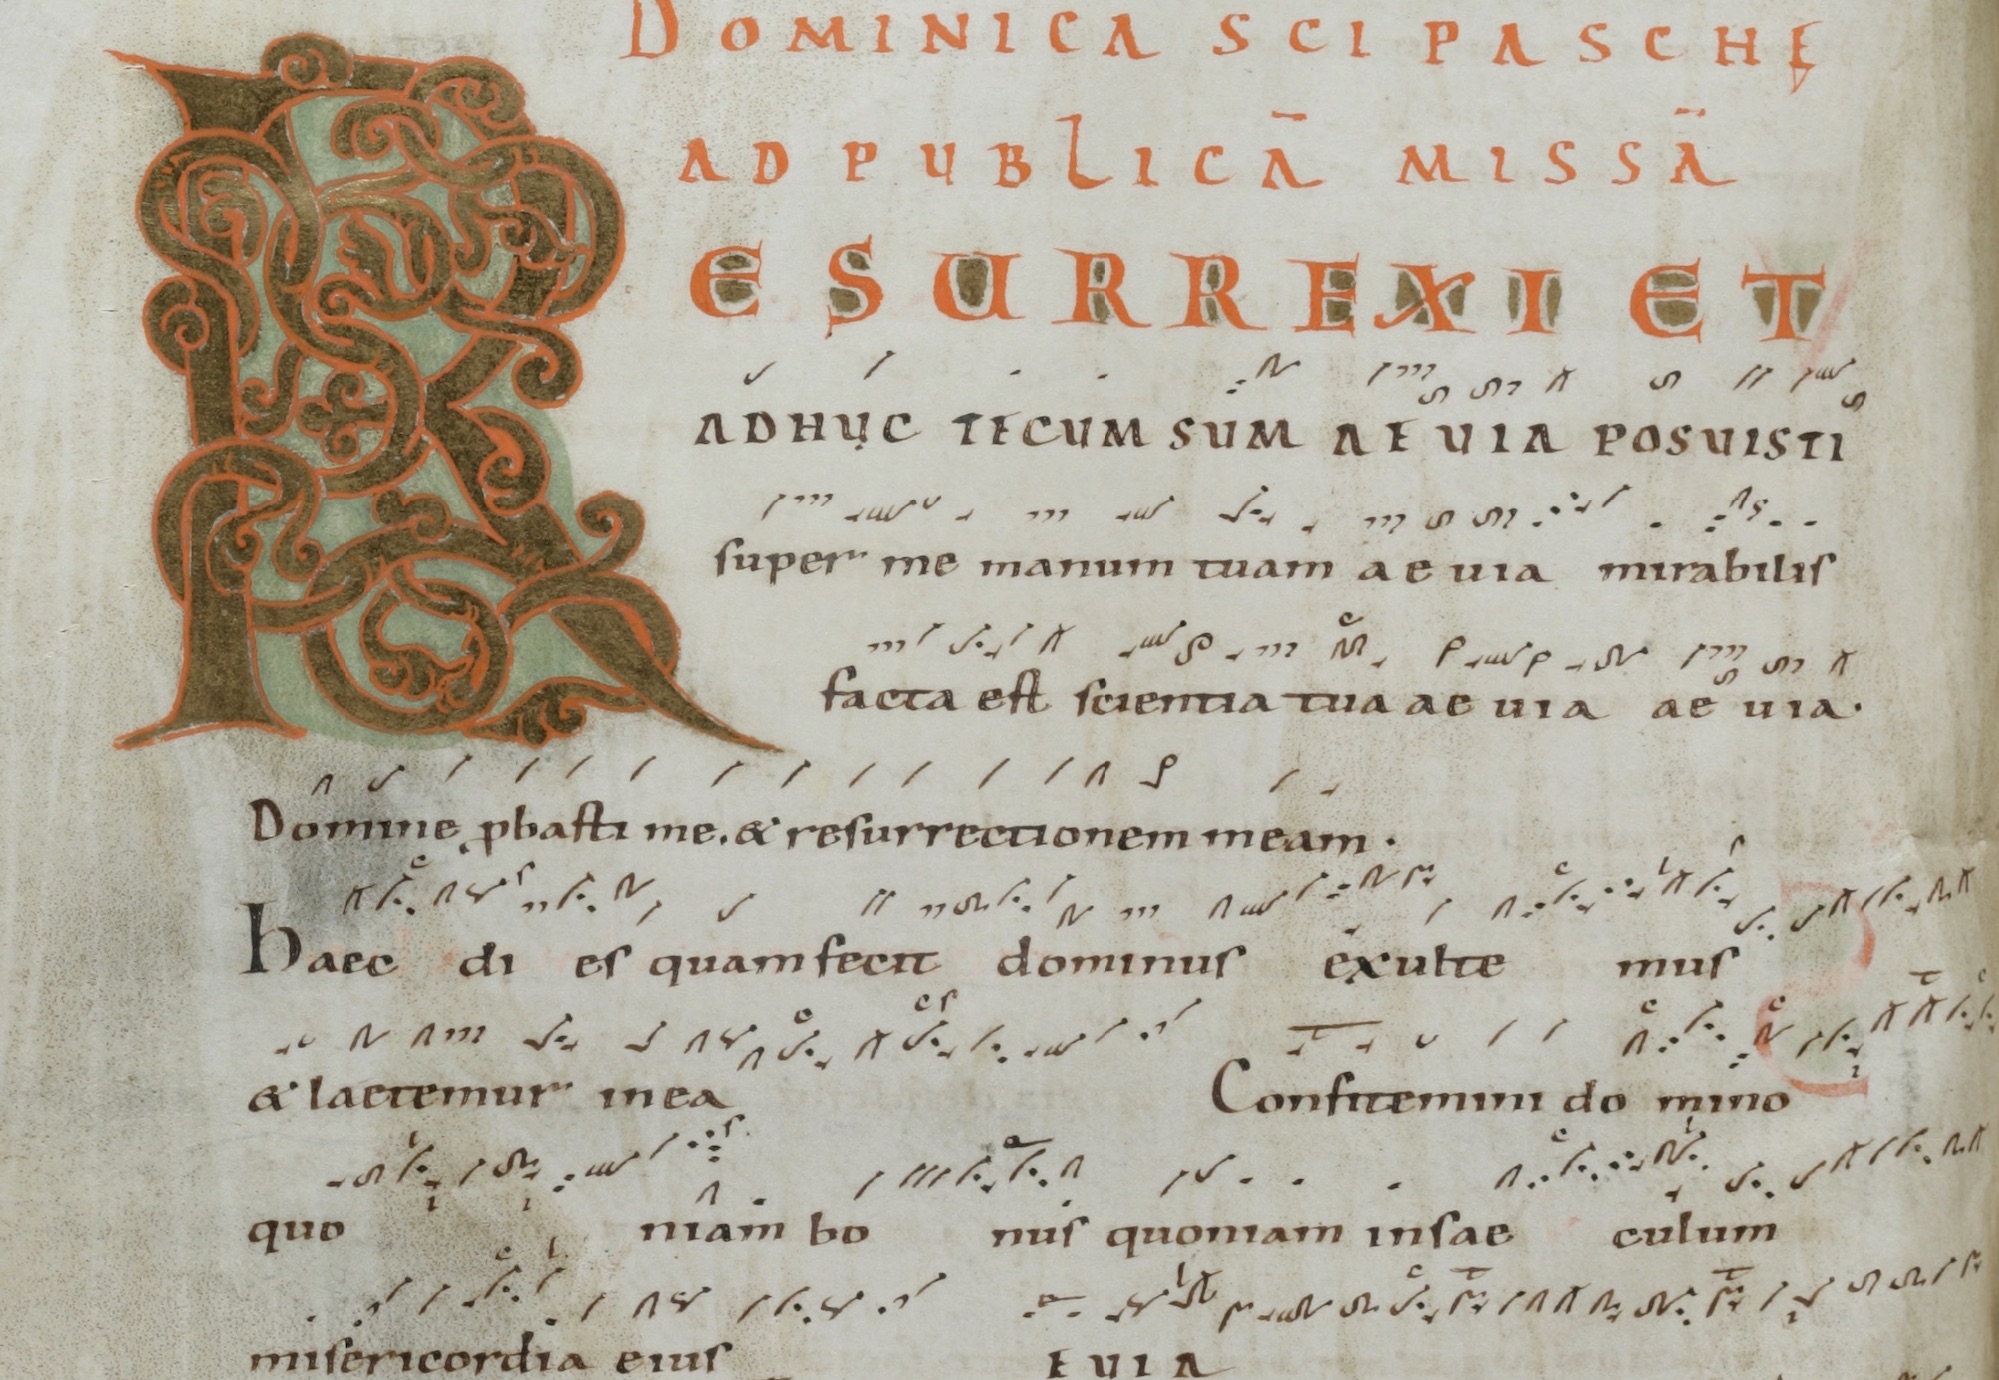 DOMINICA SCI PASCHĘ
AD PUBLICĀ MISSĀ
RESURREXI ET
ADHUC TECUM SUM AEUIA POSUISTI
super me manum tuam aeuia mirabilis
facta est scientia tua aeuia aeuia.
Domine ꝓbasti me. & resurrectionem meam.
Haec dies quam fecit dominus exultemus
& laetemur inea Confitemini domino
quoniam bonus quoniam insaeculum
misericordia eius EUIA